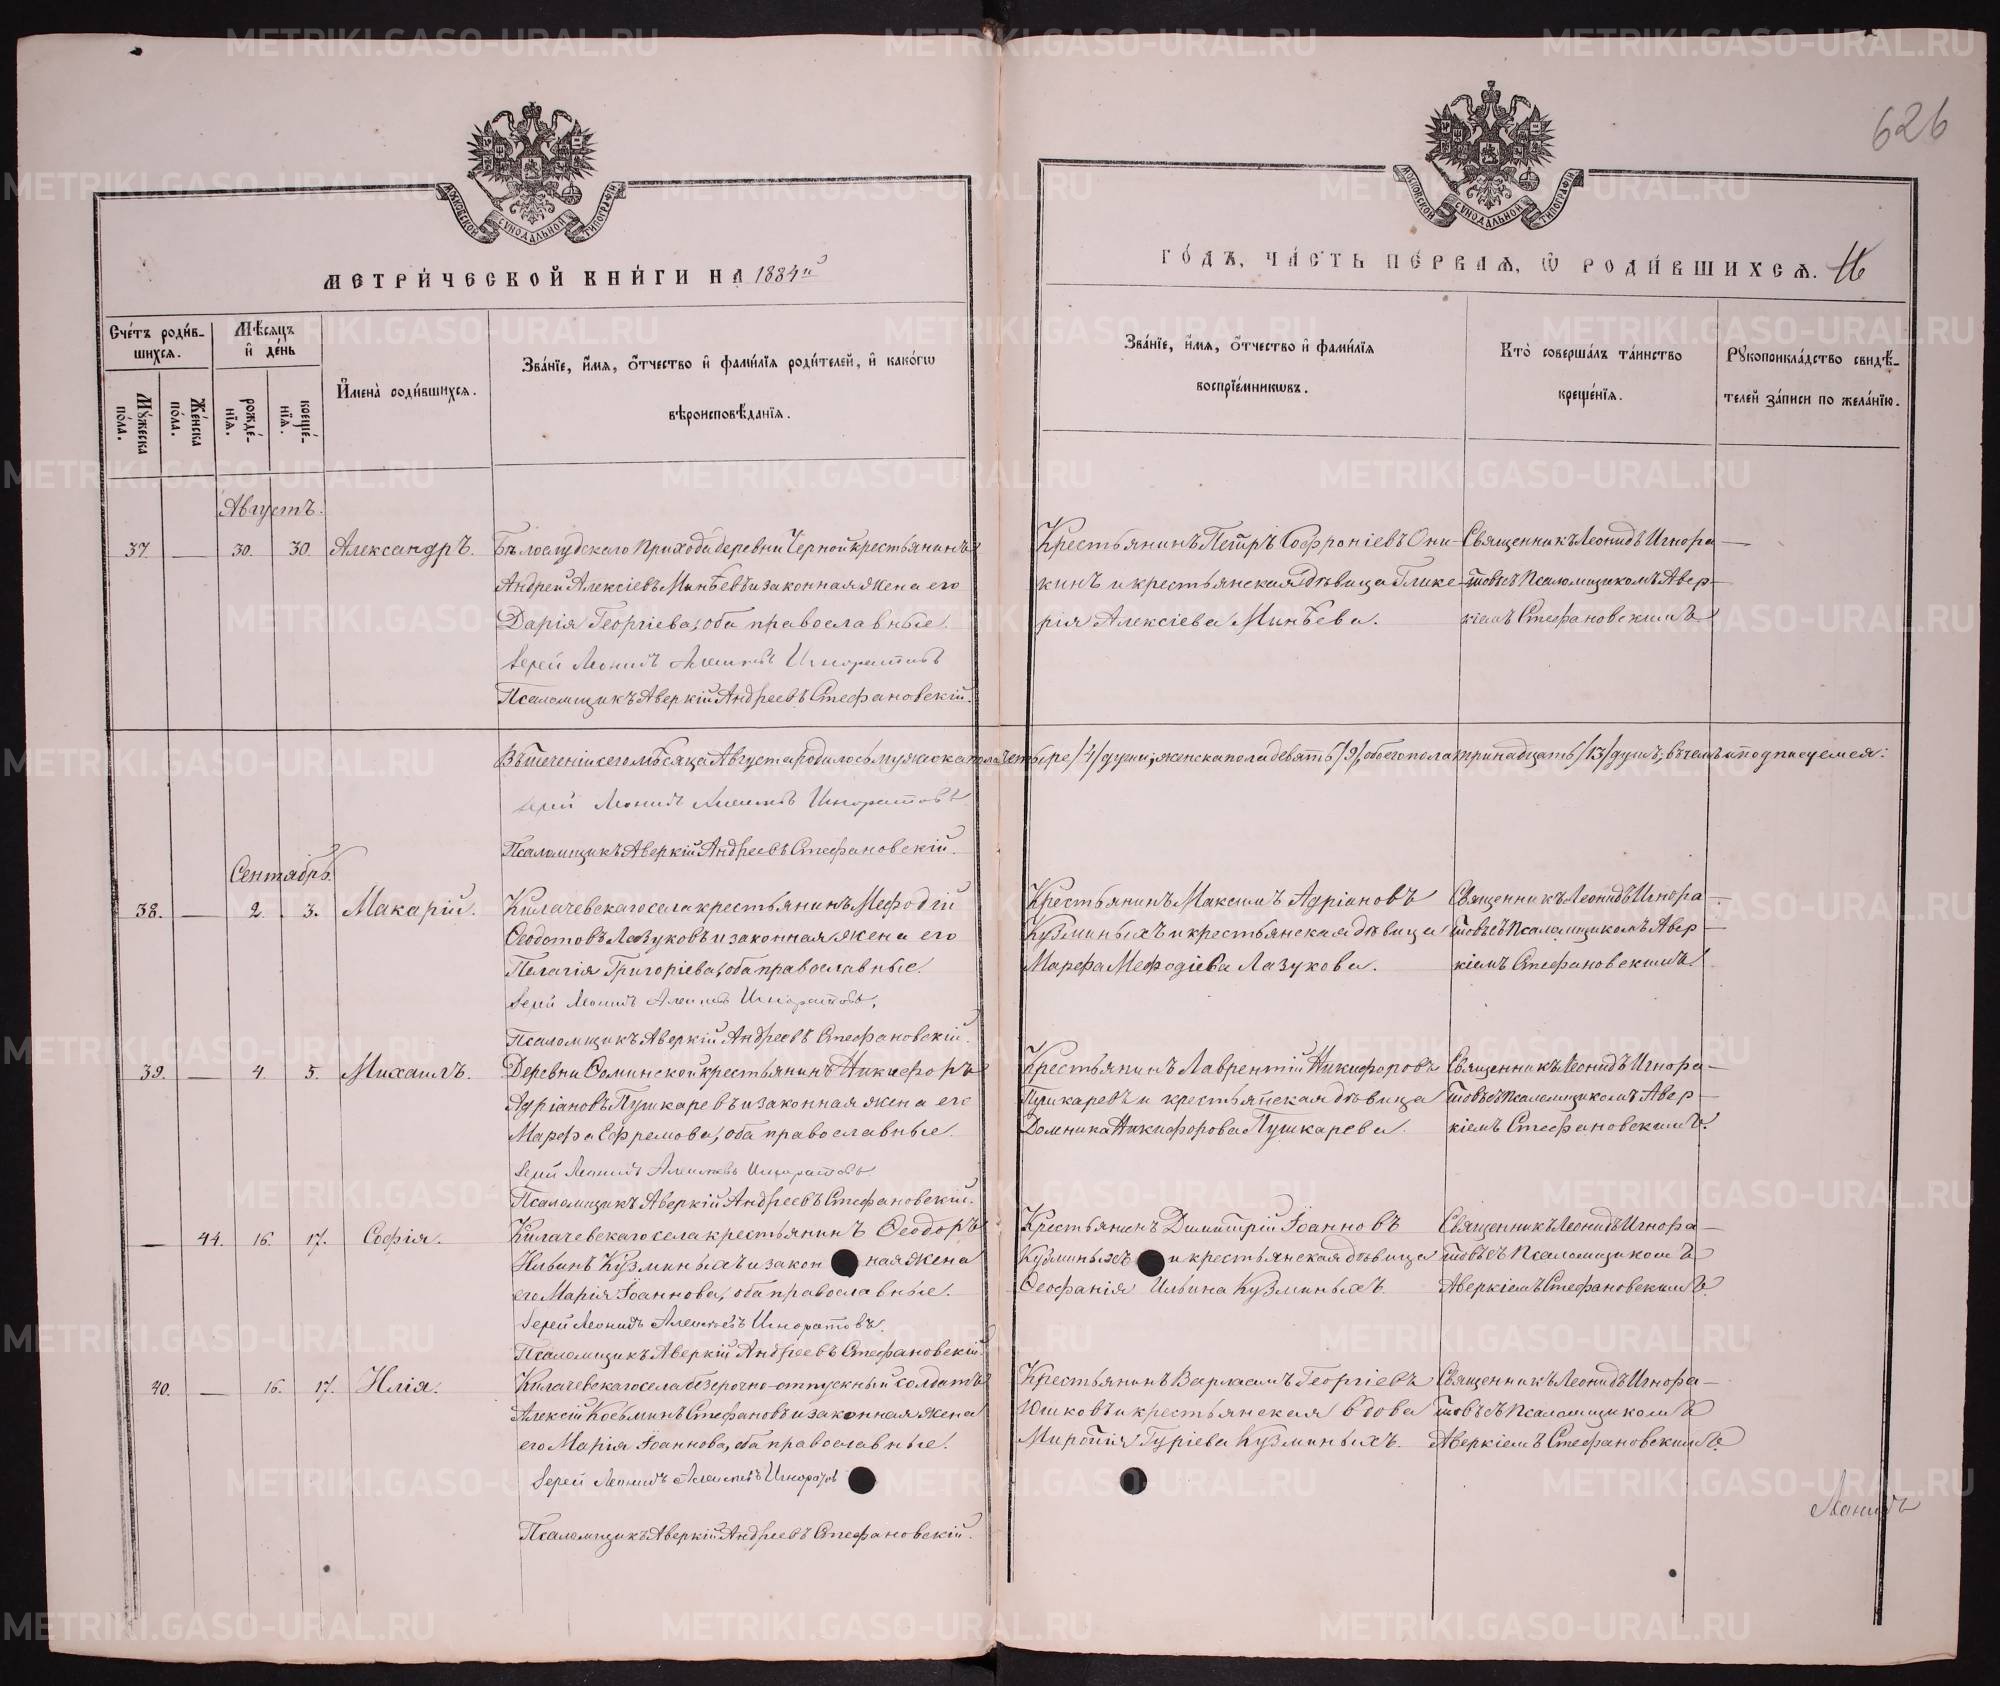 626
МОСКОВСКОЙ СѴНОДАЛЬНОЙ ТИПОГРАФІИ
МОСКОВСКОЙ СѴНОДАЛЬНОЙ ТИПОГРАФІИ
МЕТРИ́ЧЕСКОЙ КНИ́ГИ НА 1884й
ГО́ДЪ, ЧА́СТЬ ПЕ́РВАЯ, Ѽ РОДИ́ВШИХСЯ. 16
Сче́тъ роди́в-
шихся.
Му́жеска по́ла.
Же́нска по́ла.
Мѣ́сяцъ
и҆ де́нь
рожде́-
нїя.
креще́-
нїя.
И҆мена̀ роди́вшихся.
Зва́нїе, и҆́мя, ѻ҆́тчество и҆ фами́лїя роди́телей, и҆ како́гѡ
вѣроисповѣ́данїя.
Зва́нїе, и҆́мя, ѻ҆́тчество и҆ фами́лїя
воспрїе́мникѡвъ.
Кто̀ соверша́лъ та́инство
креще́нїя.
Рꙋкоприкла́дство свидѣ́-
телей за́писи по жела́нїю.
Августъ.
37. — 30. 30. Александръ. Бѣлослудскаго Прихода деревни Черной крестьянинъ
Андрей Алексіевъ Минѣевъ и законная жена его
Дарія Георгіева, оба православные.
Іерей Леонидъ Алексѣевъ Игноратовъ
Псаломщикъ Аверкій Андреевъ Стефановскій.
Крестьянинъ Петръ Софроніевъ Они-
кинъ и крестьянская дѣвица Глике-
рія Алексіева Минѣева.
Священникъ Леонидъ Игнора-
товъ съ Псаломщикомъ Авер-
кіемъ Стефановскимъ
Въ теченіи сего мѣсяца Августа родилось мужеска пола четыре /4/ души; женска пола девять /9/, обоего пола тринадцать /13/ душъ; въ чемъ и подписуемся:
Іерей Леонидъ Алексѣевъ Игноратовъ
Псаломщикъ Аверкій Андреевъ Стефановскій.
Сентябрь.
38. — 2. 3. Макарій. Килачевскаго села крестьянинъ Мефодій
Ѳеодотовъ Лазуковъ и законная жена его
Пелагія Григоріева, оба православные.
Іерей Леонидъ Алексѣевъ Игноратовъ.
Псаломщикъ Аверкій Андреевъ Стефановскій.
Крестьянинъ Максимъ Адріановъ
Кузминыхъ и крестьянская дѣвица
Марѳа Мефодіева Лазукова.
Священникъ Леонидъ Игнора-
товъ съ Псаломщикомъ Авер-
кіемъ Стефановскимъ.
39. — 4. 5. Михаилъ. Деревни Фоминской крестьянинъ Никифоръ
Адріановъ Пушкаревъ и законная жена его
Марфа Ефремова, оба православные.
Іерей Леонидъ Алексѣевъ Игноратовъ
Псаломщикъ Аверкій Андреевъ Стефановскій.
Крестьянинъ Лаврентій Никифоровъ
Пушкаревъ и крестьянская дѣвица
Домника Никифорова Пушкарева.
Священникъ Леонидъ Игнора-
товъ съ Псаломщикомъ Авер-
кіемъ Стефановскимъ.
— 44. 16. 17. Софія. Килачевскаго села крестьянинъ Ѳеодоръ
Ильинъ Кузминыхъ и закон ная жена
его Марія Іоаннова, оба православные.
Іерей Леонидъ Алексѣевъ Игноратовъ.
Псаломщикъ Аверкій Андреевъ Стефановскій.
Крестьянинъ Димитрій Іоанновъ
Кузминыхъ и крестьянская дѣвица
Ѳеофанія Ильина Кузминыхъ.
Священникъ Леонидъ Игнора-
товъ съ Псаломщикомъ
Аверкіемъ Стефановскимъ.
40. — 16. 17. Илія. Килачевскаго села безсрочно-отпускный солдатъ
Алексій Косьминъ Стефановъ и законная жена
его Марія Іоаннова, оба православные.
Іерей Леонидъ Алексѣевъ Игноратовъ
Псаломщикъ Аверкій Андреевъ Стефановскій.
Крестьянинъ Варлаамъ Георгіевъ
Юшковъ и крестьянская вдова
Миропія Гуріева Кузминыхъ.
Священникъ Леонидъ Игнора-
товъ съ Псаломщикомъ
Аверкіемъ Стефановскимъ.
Леонидъ
METRIKI.GASO-URAL.RU